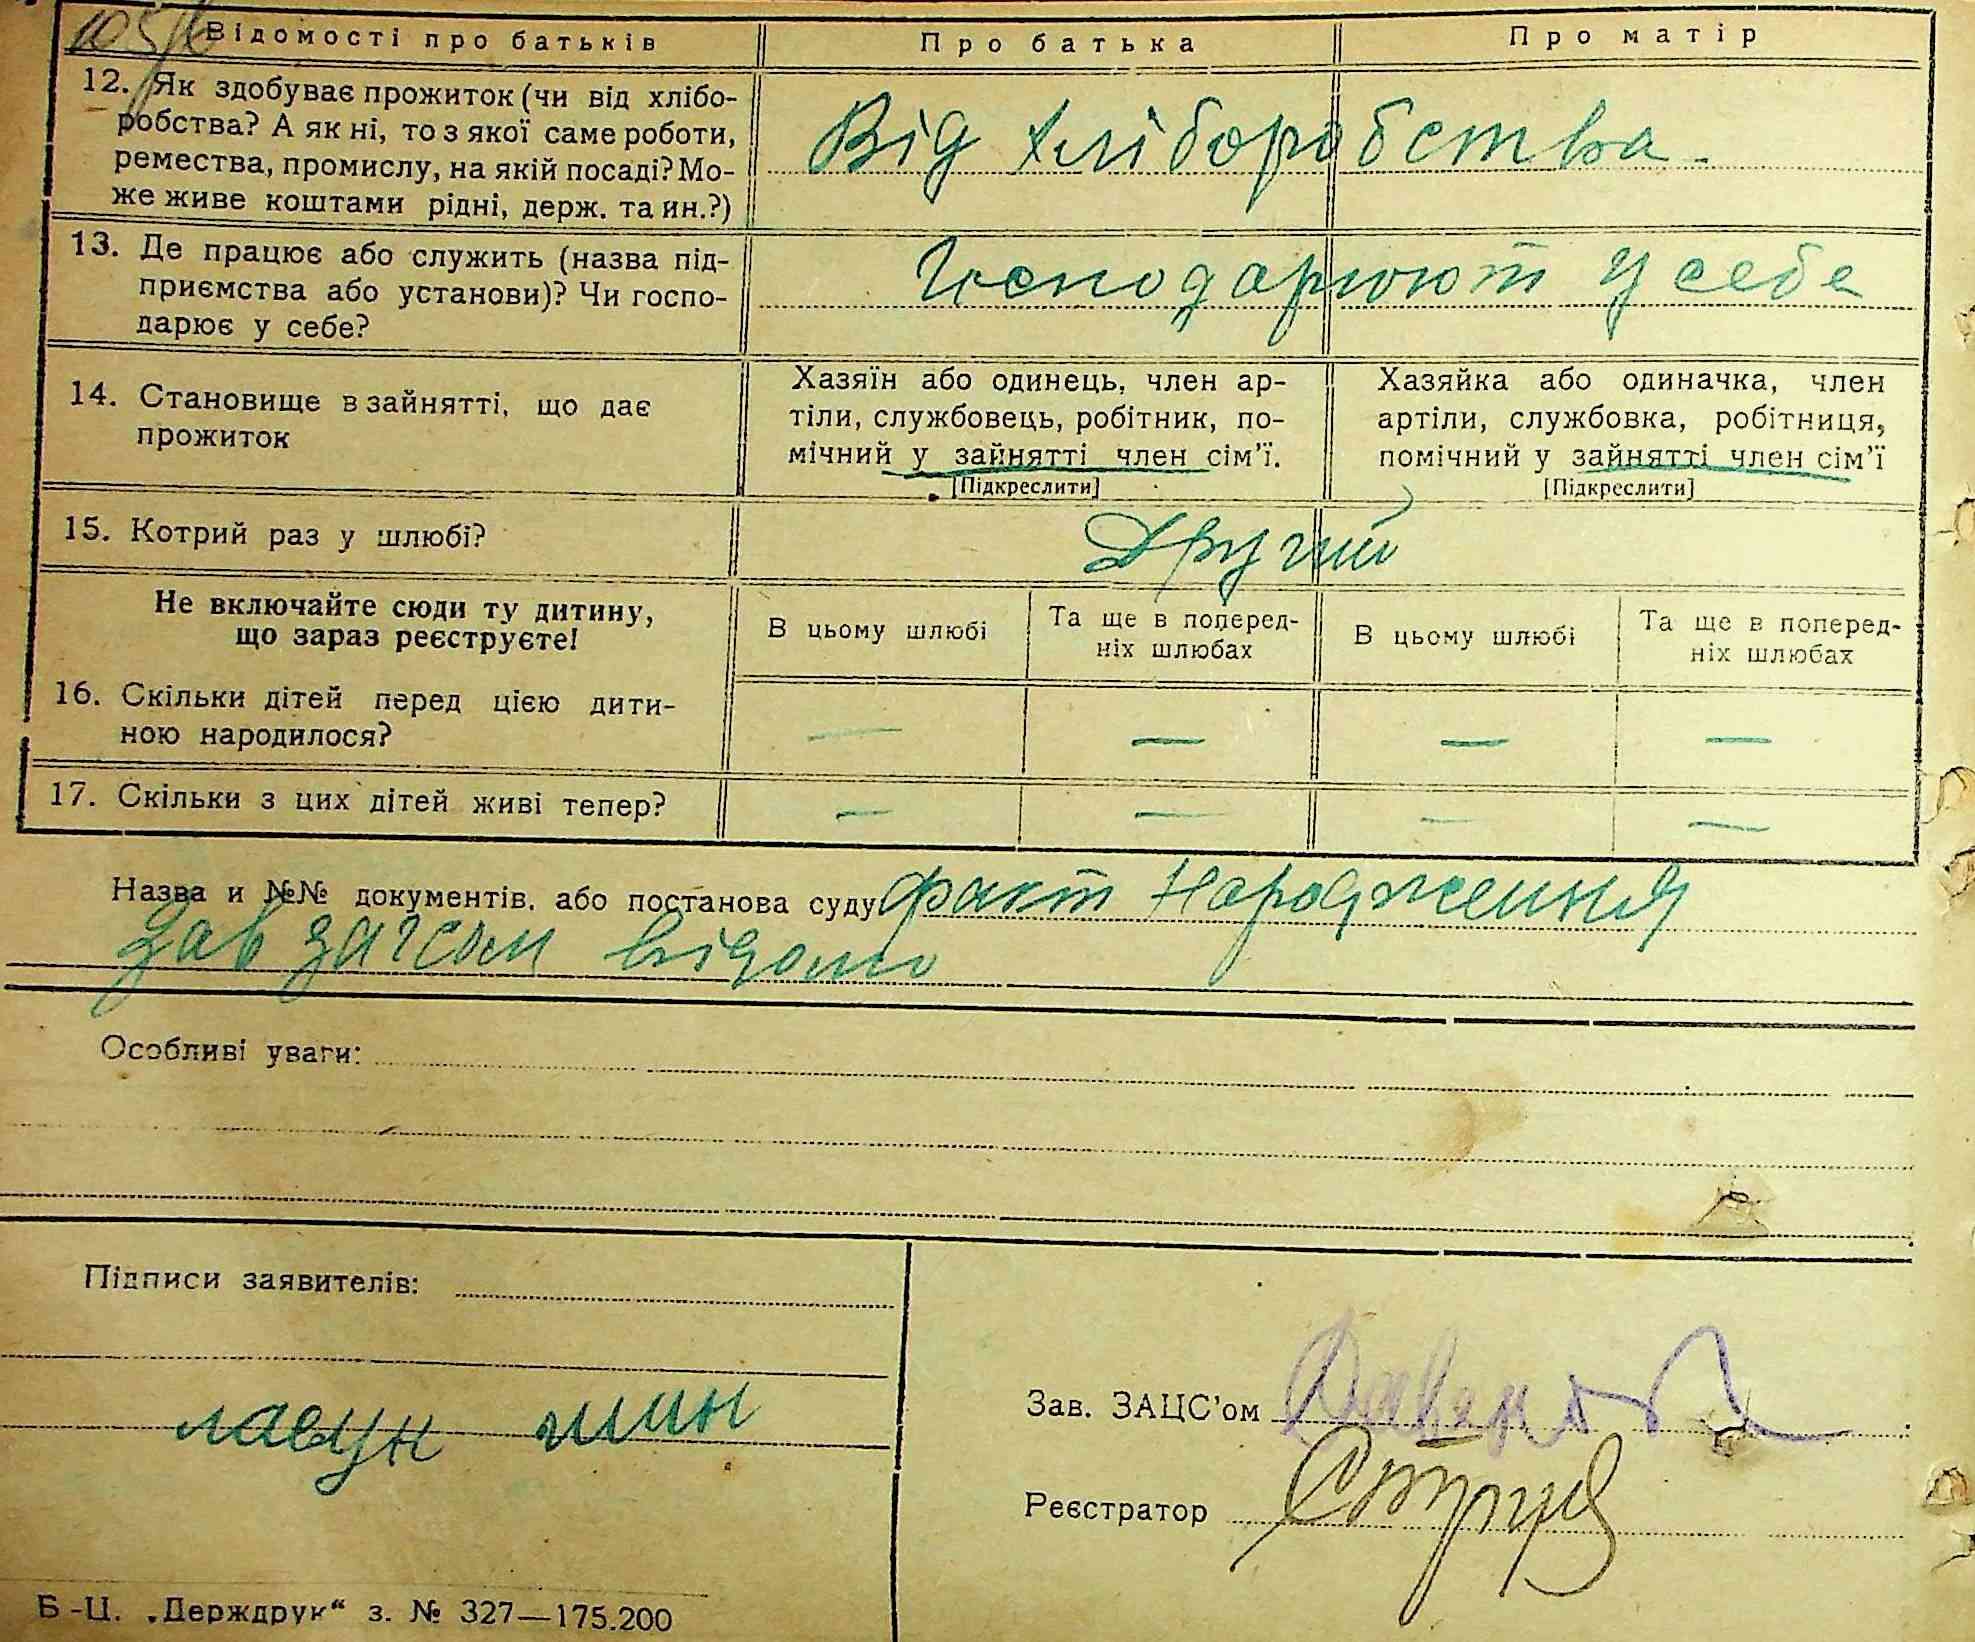 Відомості про батьків Про батька Про матір
12. Як здобуває прожиток (чи від хлібо-
робства? А як ні, то з якої саме роботи,
ремества, промислу, на якій посаді? Мо-
же живе коштами рідні, держ. та ин.?)
Від хліборобства
13. Де працює або служить (назва під-
приємства або установи)? Чи госпо-
дарює у себе?
Господарюют у себе
14. Становище в зайнятті, що дає
прожиток
Хазяїн або одинець, член ар-
тіли, службовець, робітник, по-
мічний у зайнятті член сім'ї.
[Підкреслити]
Хазяйка або одиначка, член
артіли, службовка, робітниця,
помічний у зайнятті член сім'ї
[Підкреслити]
15. Котрий раз у шлюбі?
Другий
Не включайте сюди ту дитину,
що зараз реєструєте!
В цьому шлюбі
Та ще в поперед-
ніх шлюбах
В цьому шлюбі
Та ще в поперед-
ніх шлюбах
16. Скільки дітей перед цією дити-
ною народилося?
— — — —
17. Скільки з цих дітей живі тепер?
— — — —
Назва и №№ документів, або постанова суду факт народження
зав загсом відомо
Особливі уваги:
Підписи заявителів:
Зав. ЗАЦС'ом
Реєстратор
Б-Ц. „Держдрук“ з. № 327—175.200